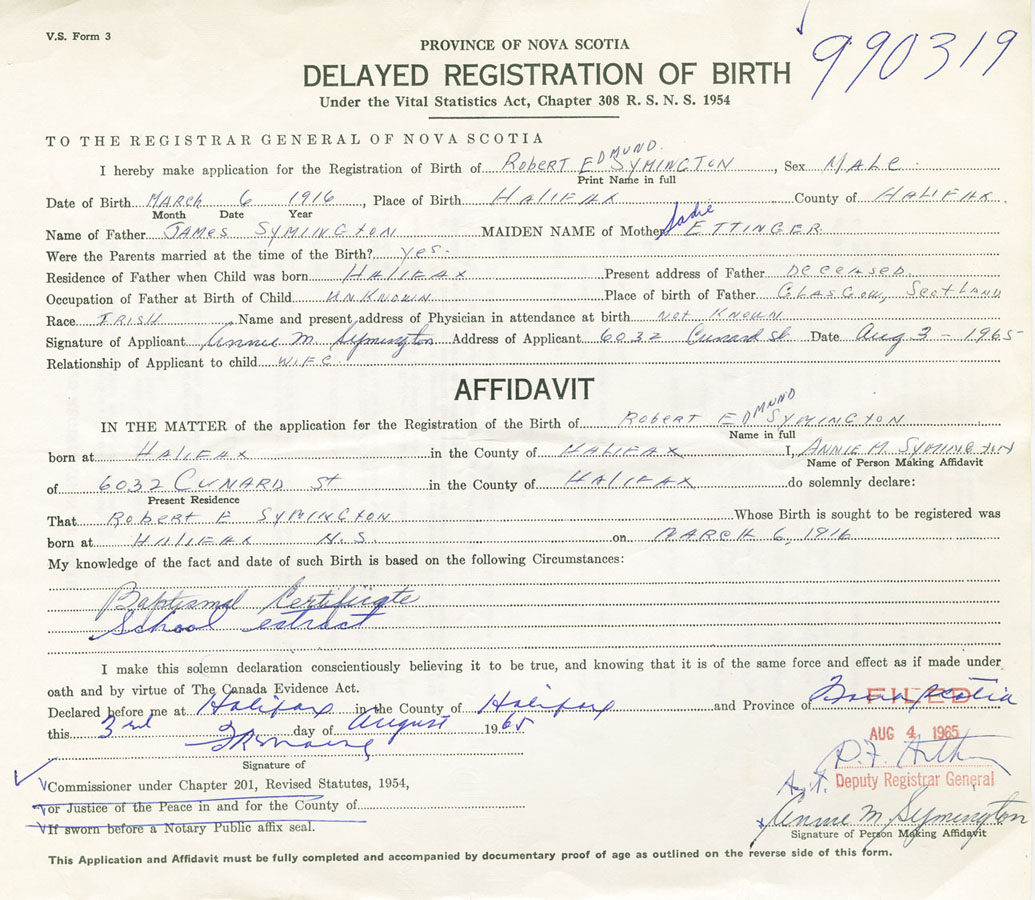 V.S. Form 3
990319
PROVINCE OF NOVA SCOTIA
DELAYED REGISTRATION OF BIRTH
Under the Vital Statistics Act, Chapter 308 R. S. N. S. 1954
TO THE REGISTRAR GENERAL OF NOVA SCOTIA
I hereby make application for the Registration of Birth of ROBERT EDMUND SYMINGTON, Sex MALE
Print Name in full
Date of Birth MARCH 6 1916, Place of Birth HALIFAX County of HALIFAX
Month Date Year
Name of Father JAMES SYMINGTON MAIDEN NAME of Mother Sadie ETTINGER
Were the Parents married at the time of the Birth? yes.
Residence of Father when Child was born HALIFAX Present address of Father DECEASED
Occupation of Father at Birth of Child UNKNOWN Place of birth of Father GLASGOW, SCOTLAND
Race IRISH, Name and present address of Physician in attendance at birth NOT KNOWN
Signature of Applicant Annie M. Symington Address of Applicant 6032 Cunard St. Date Aug 3 - 1965
Relationship of Applicant to child WIFE.
AFFIDAVIT
IN THE MATTER of the application for the Registration of the Birth of ROBERT EDMUND SYMINGTON
Name in full
born at HALIFAX in the County of HALIFAX I, ANNIE M. SYMINGTON
Name of Person Making Affidavit
of 6032 CUNARD St in the County of HALIFAX do solemnly declare:
Present Residence
That ROBERT E SYMINGTON Whose Birth is sought to be registered was
born at HALIFAX N.S. on MARCH 6, 1916
My knowledge of the fact and date of such Birth is based on the following Circumstances:
Baptismal Certificate
School extract
I make this solemn declaration conscientiously believing it to be true, and knowing that it is of the same force and effect as if made under
oath and by virtue of The Canada Evidence Act.
Declared before me at Halifax in the County of Halifax and Province of Nova Scotia
FILED
this 3rd day of August 1965
AUG 4 1965
Signature of
Deputy Registrar General
Commissioner under Chapter 201, Revised Statutes, 1954,
or Justice of the Peace in and for the County of
Annie M. Symington
If sworn before a Notary Public affix seal.
Signature of Person Making Affidavit
This Application and Affidavit must be fully completed and accompanied by documentary proof of age as outlined on the reverse side of this form.